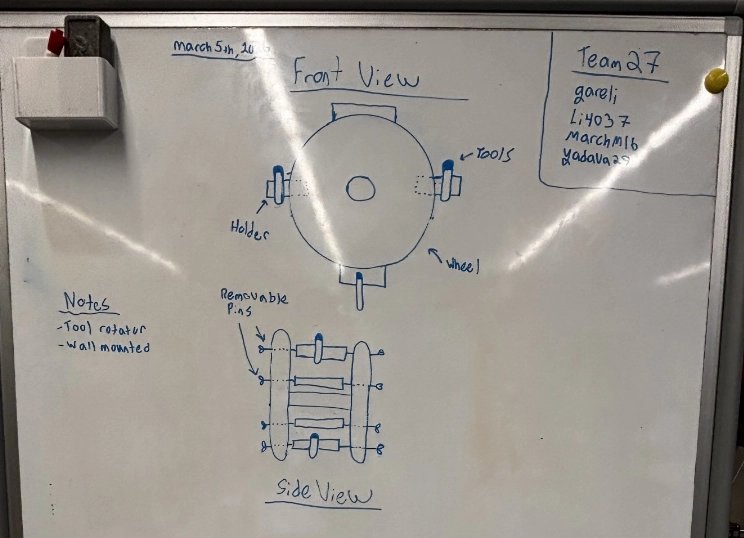 March 5th, 20
Front View
Team 27
gareli
Li4037
Marchm16
Yadava29
TOOLS
Holder
Wheel
Removable
Pins
Notes
-Tool rotator
-Wall mounted
Side View